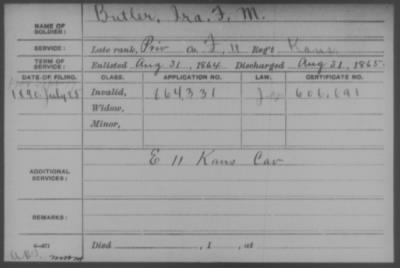 NAME OF SOLDIER: Butler, Ira. F. M.
SERVICE: Late rank, Priv Co. F, 11 Reg't Kans
TERM OF SERVICE: Enlisted Aug 31, 1864 Discharged Aug 31, 1865.
DATE OF FILING. CLASS. APPLICATION NO. LAW. CERTIFICATE NO.
1890 July 25 Invalid, 664331 606,691
Widow,
Minor,
ADDITIONAL SERVICES: E 11 Kans Cav
REMARKS:
Died , 1 , at